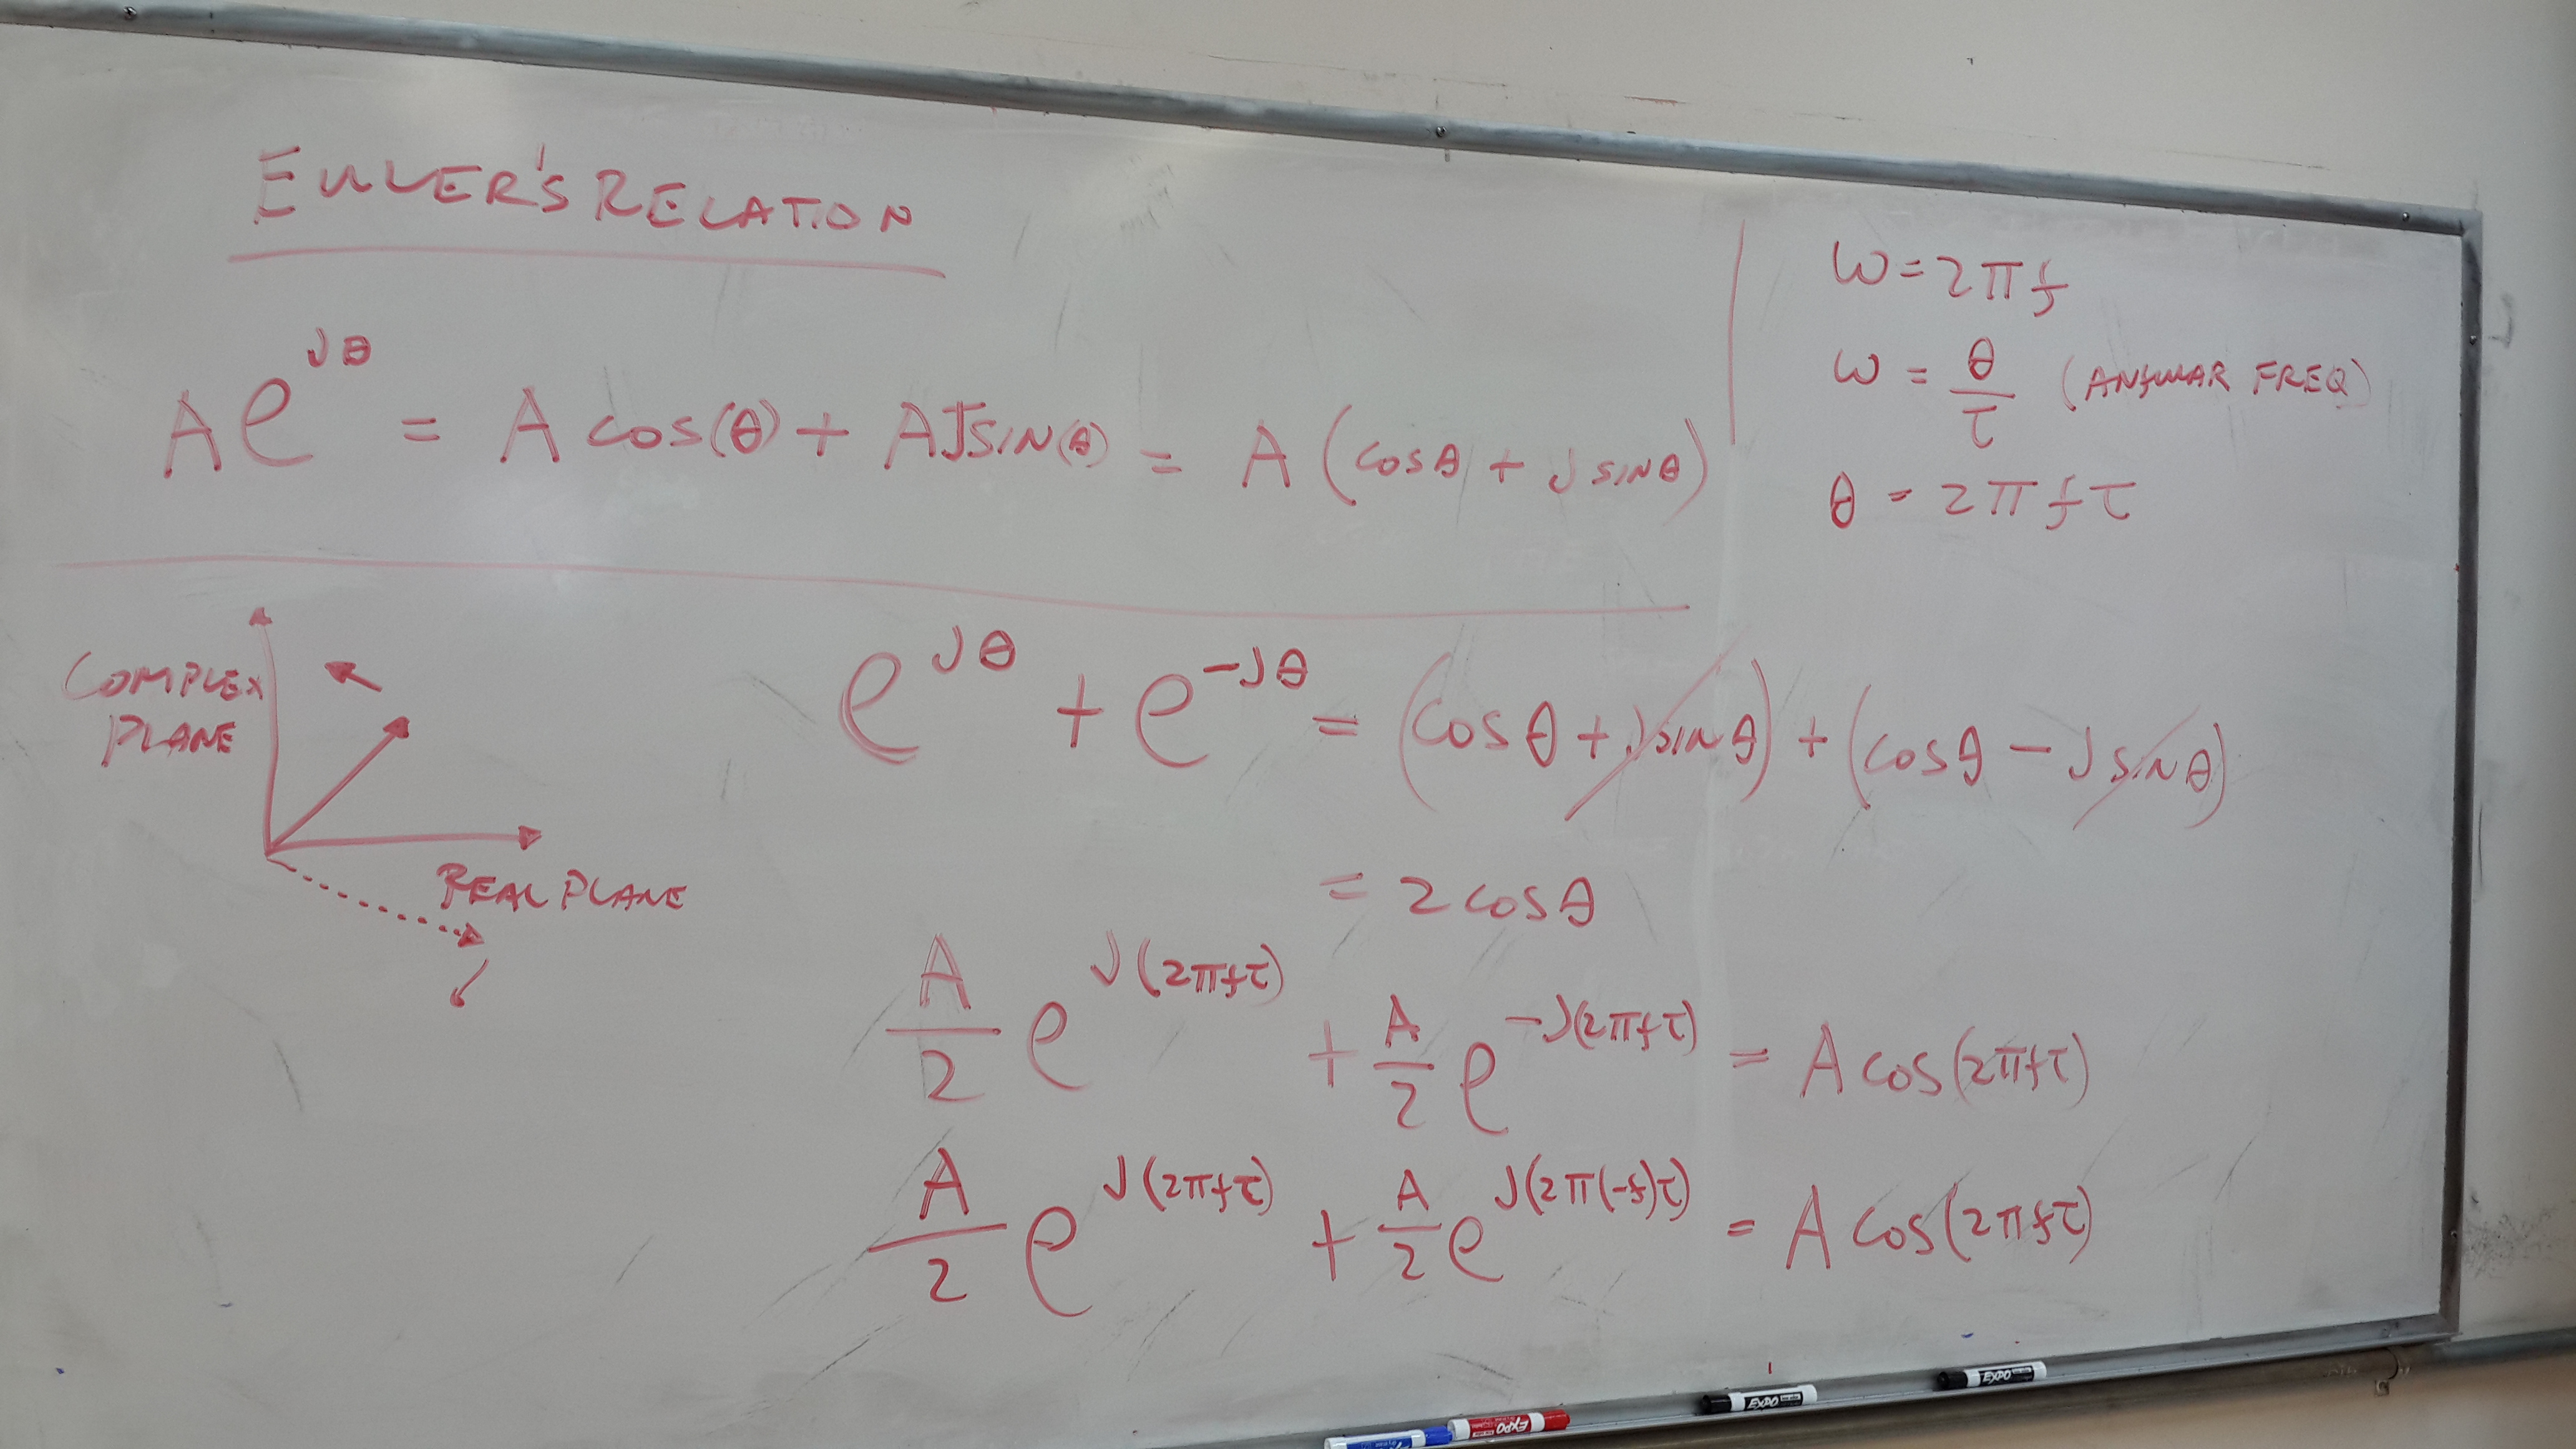 EULER'S RELATION
Ae^{jθ} = A cos(θ) + AJsin(θ) = A (cosθ + j sinθ)
ω = 2πf
ω = θ/τ (ANGULAR FREQ)
θ = 2πfτ
COMPLEX
PLANE
REAL PLANE
e^{jθ} + e^{-jθ} = (cosθ + jsinθ) + (cosθ - j sinθ)
= 2 cosθ
A/2 e^{j(2πfτ)} + A/2 e^{-j(2πfτ)} = A cos(2πfτ)
A/2 e^{j(2πfτ)} + A/2 e^{j(2π(-f)τ)} = A cos(2πfτ)
EXPO
EXPO
EXPO